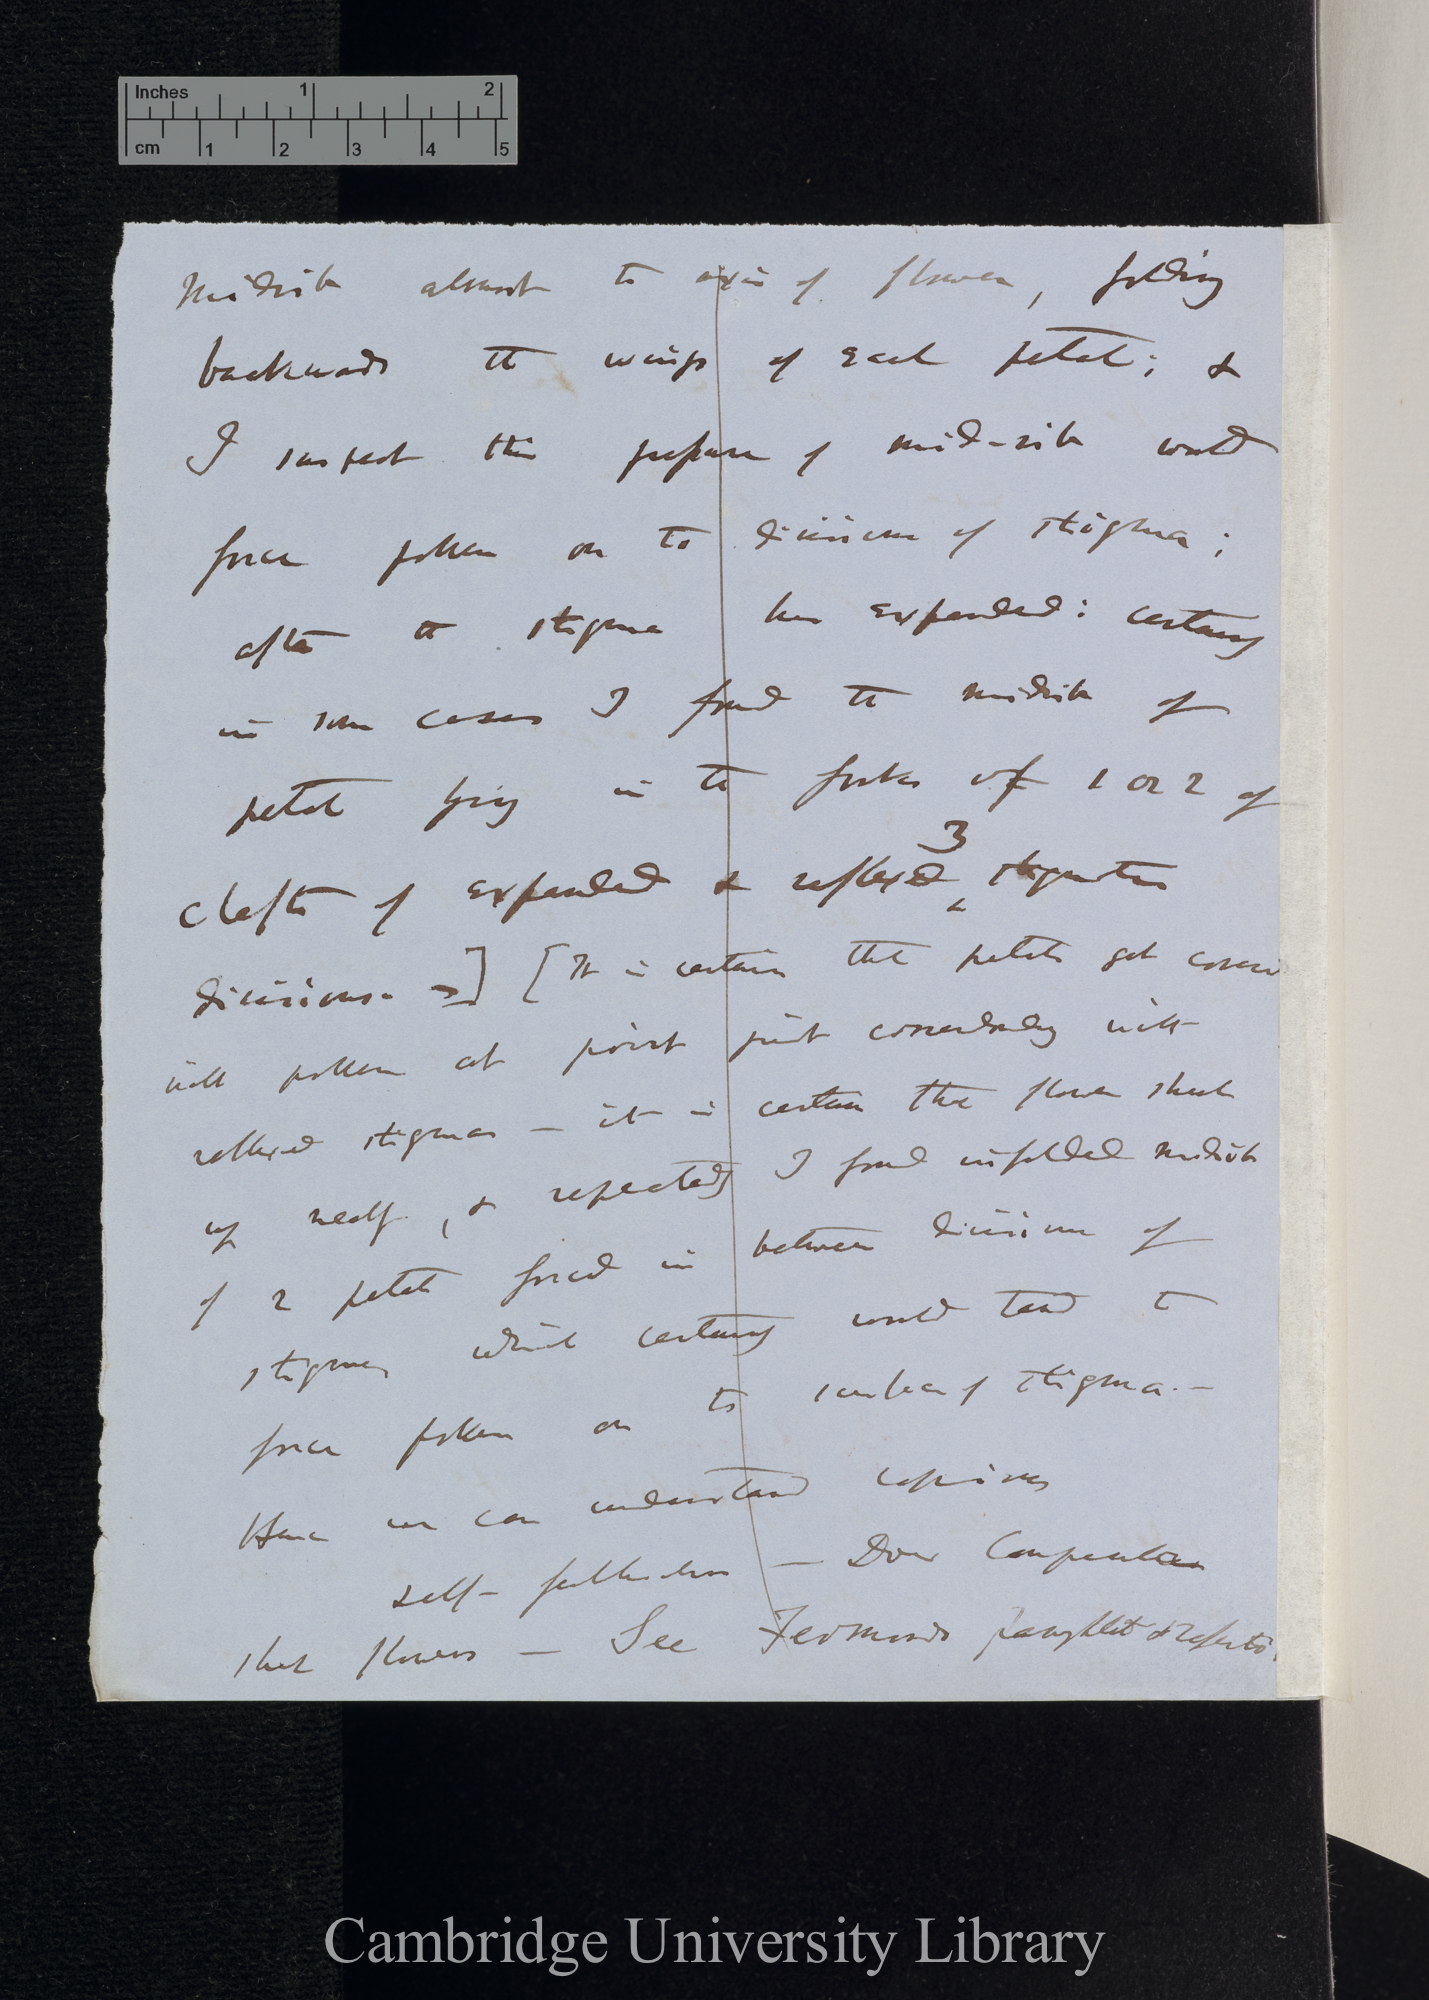 Inches 1 2
cm 1 2 3 4 5
midrib almost to axis of flower, folding
backwards the wings of each petal; &
I suspect this pressure of mid-rib would
force pollen on to divisions of stigma;
after the stigma has expanded: certainly
in some cases I found the midrib of
petal lying in the forks of 1 or 2 of
clefts of expanded & reflexed 3 stigmatic
divisions.—] [It is certain that petals get cover
with pollen at point just corresponding with
reflexed stigmas — it is certain that flower shuts
up neatly, & repeatedly I found infolded midrib
of 2 petals forced in between divisions of
stigma, which certainly would tend to
force pollen on to surface of stigma.—
Hence we can understand
self-fertilisation — Does Campanula
shut flowers — See Fermonds pamphlet &
Cambridge University Library